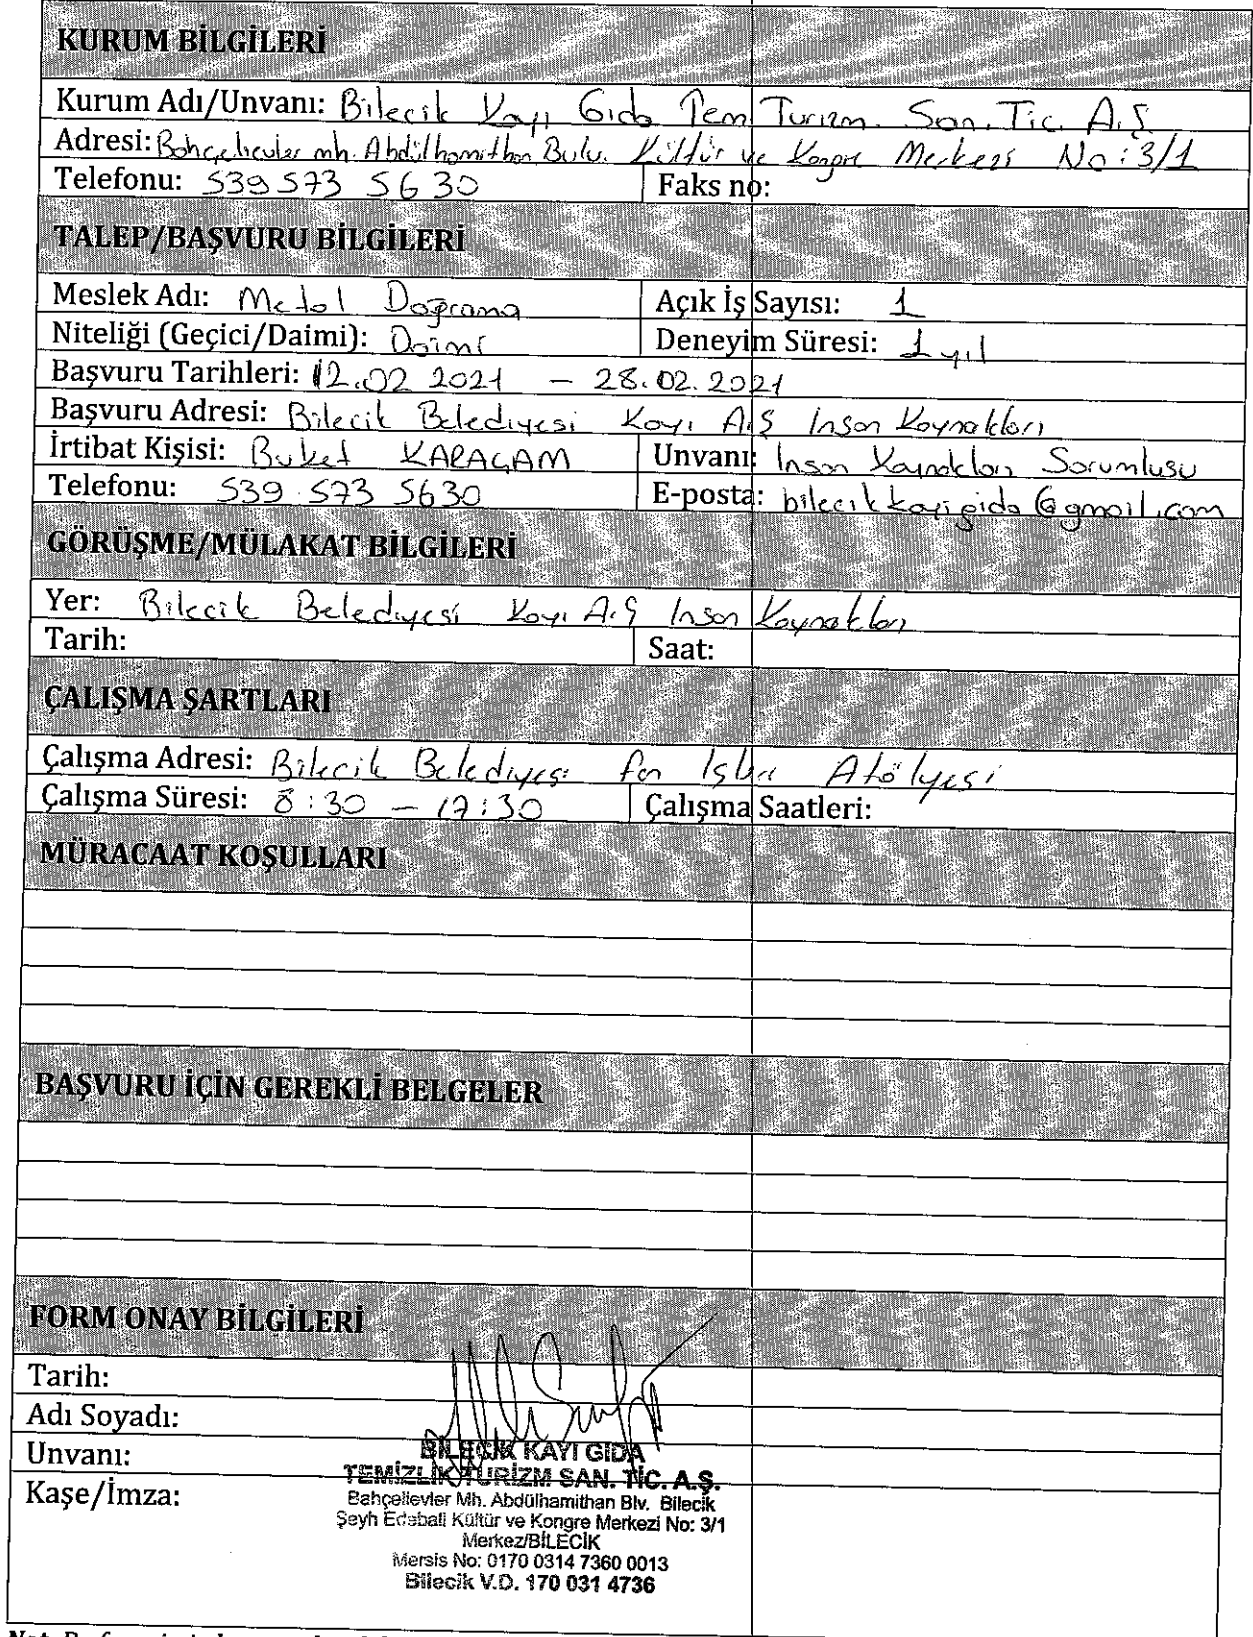 KURUM BİLGİLERİ
Kurum Adı/Unvanı: Bilecik Kayı Gıda Tem Turizm. San. Tic. A.Ş
Adresi: Bahçelievler mh. Abdülhamithan Bulv. Kültür ve Kongre Merkezi No: 3/1
Telefonu: 539 573 5630 Faks no:
TALEP/BAŞVURU BİLGİLERİ
Meslek Adı: Metal Doğrama Açık İş Sayısı: 1
Niteliği (Geçici/Daimi): Daimi Deneyim Süresi: 1 yıl
Başvuru Tarihleri: 12.02 2021 – 28.02.2021
Başvuru Adresi: Bilecik Belediyesi Kayı A.Ş İnsan Kaynakları
İrtibat Kişisi: Buket KARAÇAM Unvanı: İnsan Kaynakları Sorumlusu
Telefonu: 539 573 5630 E-posta: bilecikkayigida@gmail.com
GÖRÜŞME/MÜLAKAT BİLGİLERİ
Yer: Bilecik Belediyesi Kayı A.Ş İnsan Kaynakları
Tarih: Saat:
ÇALIŞMA ŞARTLARI
Çalışma Adresi: Bilecik Belediyesi Fen İşleri Atölyesi
Çalışma Süresi: 8:30 – 17:30 Çalışma Saatleri:
MÜRACAAT KOŞULLARI
BAŞVURU İÇİN GEREKLİ BELGELER
FORM ONAY BİLGİLERİ
Tarih:
Adı Soyadı:
Unvanı:
Kaşe/İmza:
BİLECİK KAYI GIDA
TEMİZLİK TURİZM SAN. TİC. A.Ş.
Bahçelievler Mh. Abdülhamithan Blv. Bilecik
Şeyh Edebali Kültür ve Kongre Merkezi No: 3/1
Merkez/BİLECİK
Mersis No: 0170 0314 7360 0013
Bilecik V.D. 170 031 4736